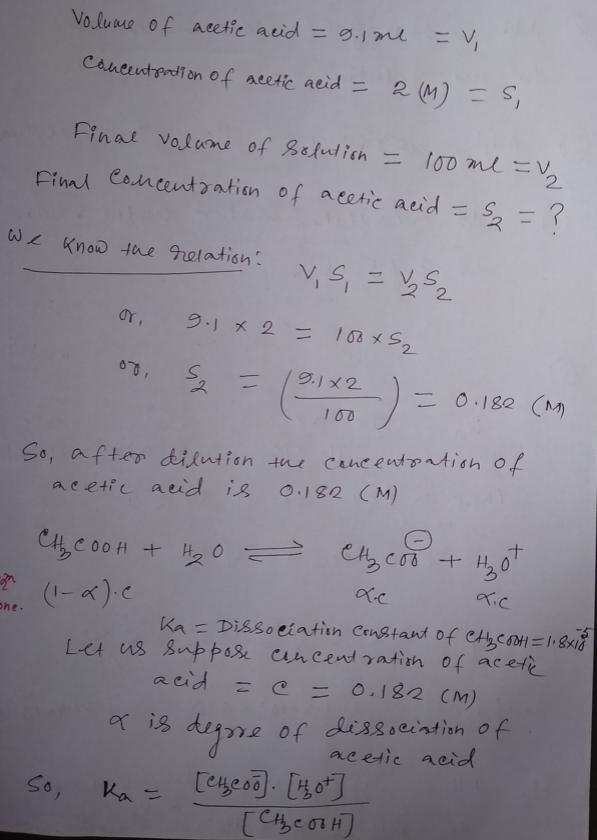 Volume of acetic acid = 9.1 ml = V₁
Concentration of acetic acid = 2 (M) = S₁
Final volume of solution = 100 ml = V₂
Final Concentration of acetic acid = S₂ = ?
We know the relation:
V₁ S₁ = V₂ S₂
or, 9.1 × 2 = 100 × S₂
or, S₂ = (9.1×2 / 100) = 0.182 (M)
So, after dilution the concentration of
acetic acid is 0.182 (M)
CH₃COOH + H₂O ⇌ CH₃COO⁻ + H₃O⁺
(1-α).c α.c α.c
Ka = Dissociation constant of CH₃COOH = 1.8×10⁻⁵
Let us suppose concentration of acetic
acid = c = 0.182 (M)
α is degree of dissociation of
acetic acid
So, Ka = [CH₃COO⁻].[H₃O⁺] / [CH₃COOH]